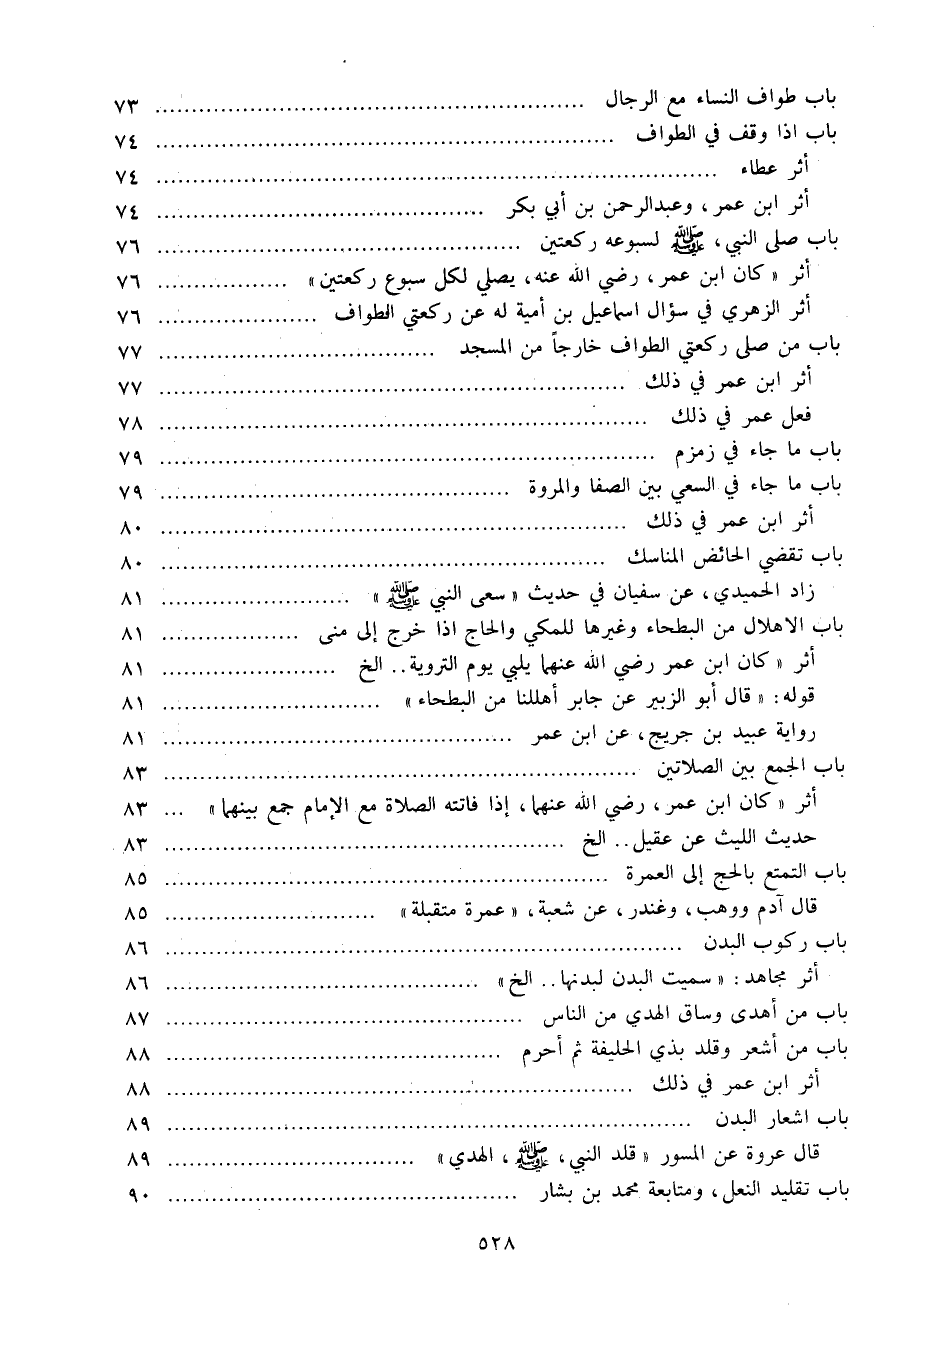 باب طواف النساء مع الرجال ........ ٧٣
باب اذا وقف في الطواف ........ ٧٤
أثر عطاء ........ ٧٤
أثر ابن عمر، وعبدالرحمن بن أبي بكر ........ ٧٤
باب صلى النبي، ﷺ لسبوعه ركعتين ........ ٧٦
أثر « كان ابن عمر، رضي الله عنه، يصلي لكل سبوع ركعتين» ........ ٧٦
أثر الزهري في سؤال اسماعيل بن أمية له عن ركعتي الطواف ........ ٧٦
باب من صلى ركعتي الطواف خارجاً من المسجد ........ ٧٧
أثر ابن عمر في ذلك ........ ٧٧
فعل عمر في ذلك ........ ٧٨
باب ما جاء في زمزم ........ ٧٩
باب ما جاء في السعي بين الصفا والمروة ........ ٧٩
أثر ابن عمر في ذلك ........ ٨٠
باب تقضي الحائض المناسك ........ ٨٠
زاد الحميدي، عن سفيان في حديث « سعى النبي ﷺ » ........ ٨١
باب الاهلال من البطحاء وغيرها للمكي والحاج اذا خرج إلى منى ........ ٨١
أثر « كان ابن عمر رضي الله عنهما يلبي يوم التروية.. الخ ........ ٨١
قوله: « قال أبو الزبير عن جابر أهللنا من البطحاء » ........ ٨١
رواية عبيد بن جريج، عن ابن عمر ........ ٨١
باب الجمع بين الصلاتين ........ ٨٣
أثر « كان ابن عمر، رضي الله عنهما، إذا فاتته الصلاة مع الإمام جمع بينهما» ... ٨٣
حديث الليث عن عقيل.. الخ ........ ٨٣
باب التمتع بالحج إلى العمرة ........ ٨٥
قال آدم ووهب، وغندر، عن شعبة، « عمرة متقبلة» ........ ٨٥
باب ركوب البدن ........ ٨٦
أثر مجاهد: « سميت البدن لبدنها.. الخ» ........ ٨٦
باب من أهدى وساق الهدي من الناس ........ ٨٧
باب من أشعر وقلد بذي الحليفة ثم أحرم ........ ٨٨
أثر ابن عمر في ذلك ........ ٨٨
باب اشعار البدن ........ ٨٩
قال عروة عن المسور « قلد النبي، ﷺ، الهدي» ........ ٨٩
باب تقليد النعل، ومتابعة محمد بن بشار ........ ٩٠
٥٢٨